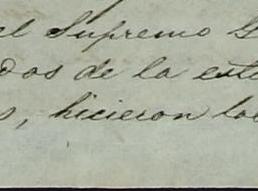 el Supremo G
dos de la est
s, hicieron lo